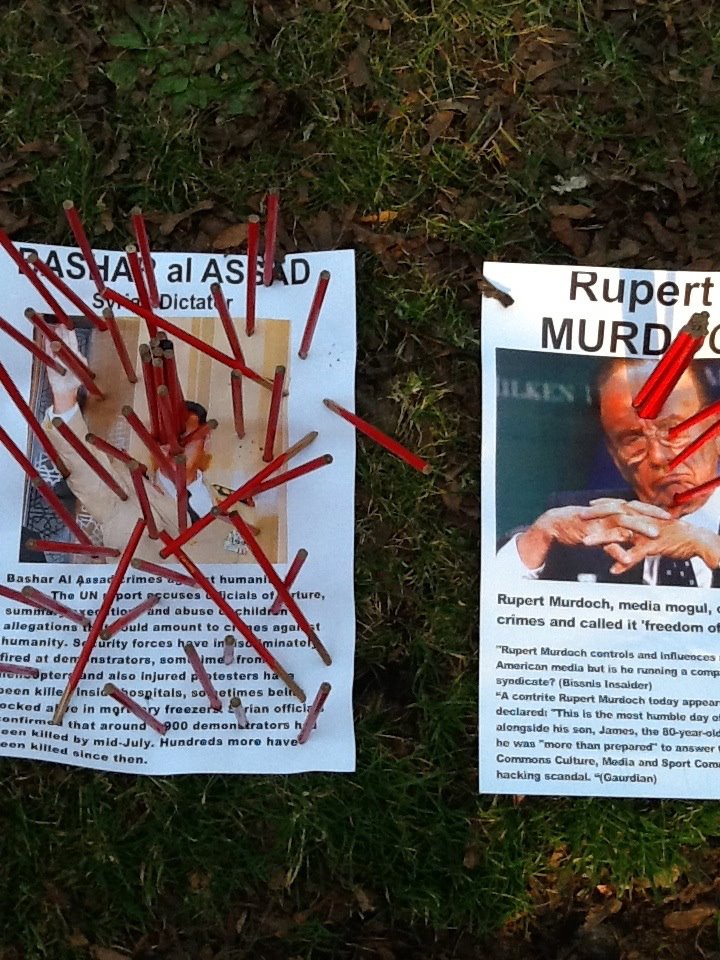 BASHAR al ASSAD
Syrian Dictator
Bashar Al Assad crimes against humanity
The UN report accuses officials of torture,
summary execution and abuse of children
allegations that could amount to crimes against
humanity. Security forces have indiscriminately
fired at demonstrators, sometimes from
helicopters and also injured protesters have
been killed inside hospitals, sometimes being
locked alive in mortuary freezers. Syrian officials
confirmed that around 900 demonstrators ha
been killed by mid-July. Hundreds more have
been killed since then.
Rupert
MURDOC
ILKEN I
Rupert Murdoch, media mogul,
crimes and called it 'freedom of
"Rupert Murdoch controls and influences
American media but is he running a
syndicate? (Bissnis Insaider)
"A contrite Rupert Murdoch today appear
declared: "This is the most humble day o
alongside his son, James, the 80-year-old
he was "more than prepared" to answer
Commons Culture, Media and Sport Com
hacking scandal. "(Gaurdian)